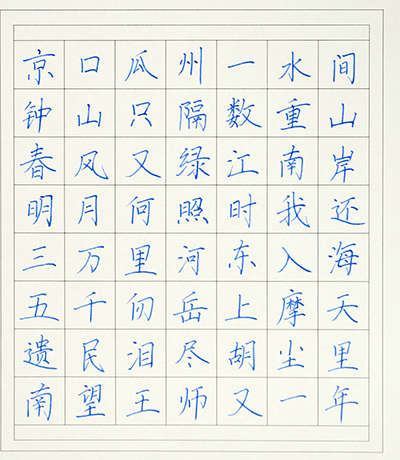 京口瓜州一水间
钟山只隔数重山
春风又绿江南岸
明月何时照我还
三万里河东入海
五千仞岳上摩天
遗民泪尽胡尘里
南望王师又一年